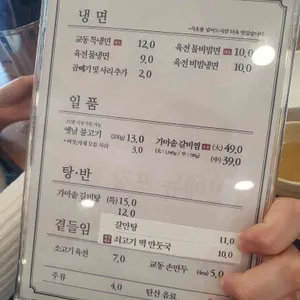 냉 면
교동특냉면 12,0
육전물냉면 9,0
곱빼기 및 사리 추가 2,0
육전물비빔면 10,0
육전 비빔냉면 10,0
일 품
옛날 불고기 (200g) 13,0
3,0
가마솥갈비찜 (大) 49,0
(中) 39,0
탕·반
가마솥갈비탕 (특) 15,0
12,0
갈만탕 11,0
쇠고기 떡 만둣국 10,0
곁들임
소고기육전 7,0
교동 손만두 (4pcs) 5,0
주류 4,0
탄산 음료